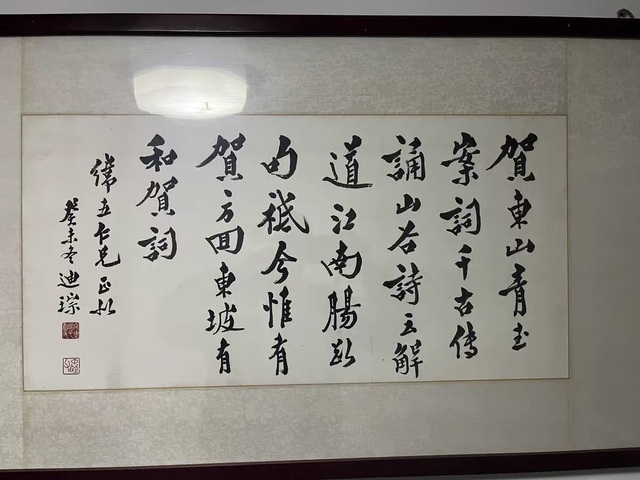 賀東山青玉
案詞千古傳
誦山谷詩云解
道江南腸斷
句祇今惟有
賀方回東坡有
和賀詞
緯五仁兄正
癸未冬迪琮